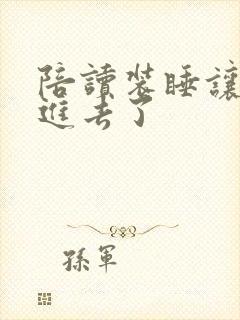 陪讀裝睡讓
進去了
孫軍